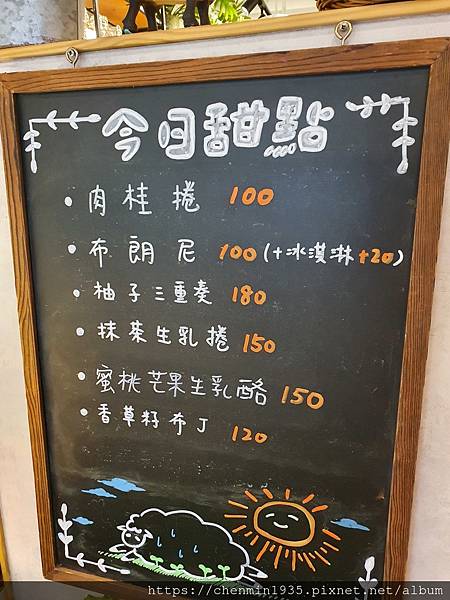 今日甜點
• 肉桂捲 100
• 布朗尼 100 (+冰淇淋+20)
• 柚子三重奏 180
• 抹茶生乳捲 150
• 蜜桃芒果生乳酪 150
• 香草籽布丁 120
https://chenmin1935.pixnet.net/album